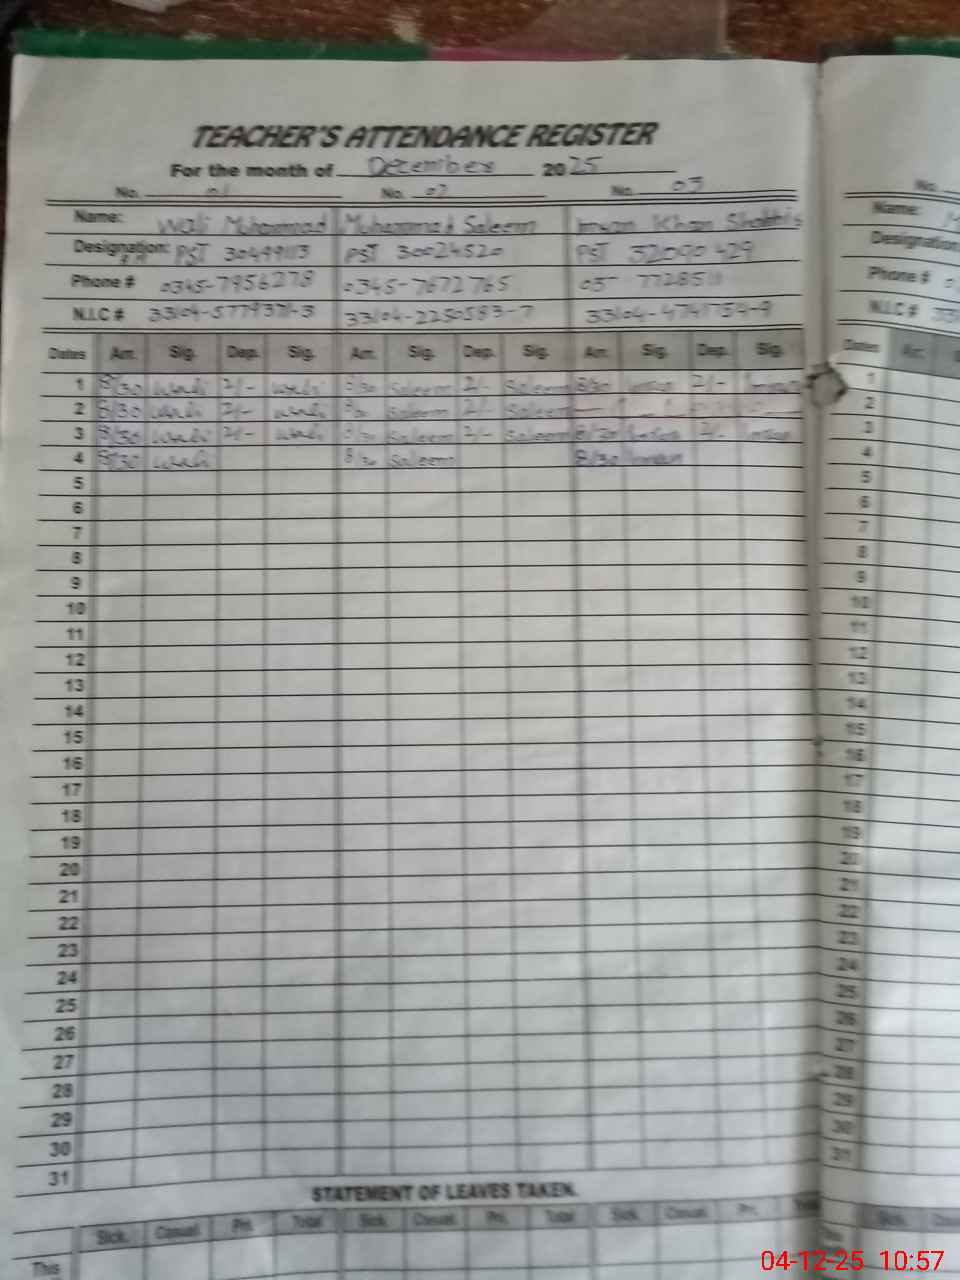 TEACHER'S ATTENDANCE REGISTER
For the month of December 2025
No. 01 No. 02 No. 03 No.
Name: Wali Muhammad Muhammad Saleem Imran Khan Name:
Designation: PST 30499113 PST 30024520 PST 32090429 Designation
Phone # 0345-7956278 0345-7672765 7728511 Phone #
N.I.C # 33104- 33104-2250583-7 33104- N.I.C # 33
Dates Arr. Sig. Dep. Sig. Arr. Sig. Dep. Sig. Arr. Sig. Dep. Sig. Dates Arr.
1 8/30 Wali 2/- Wali 8/30 Saleem 2/- Saleem 8/30 Imran 2/- Imran 1
2 8/30 Wali 2/- Wali 8/30 Saleem 2/- Saleem 2
3 8/30 Wali 2/- Wali 8/30 Saleem 2/- Saleem 8/30 Imran 2/- Imran 3
4 8/30 Wali 8/30 Saleem 8/30 Imran 4
5 5
6 6
7 7
8 8
9 9
10 10
11 11
12 12
13 13
14 14
15 15
16 16
17 17
18 18
19 19
20 20
21 21
22 22
23 23
24 24
25 25
26 26
27 27
28 28
29 29
30 30
31 31
STATEMENT OF LEAVES TAKEN.
Sick. Casual. Pri. Total Sick. Casual. Pri. Total Sick. Casual. Pri. Sick.
This
04-12-25 10:57